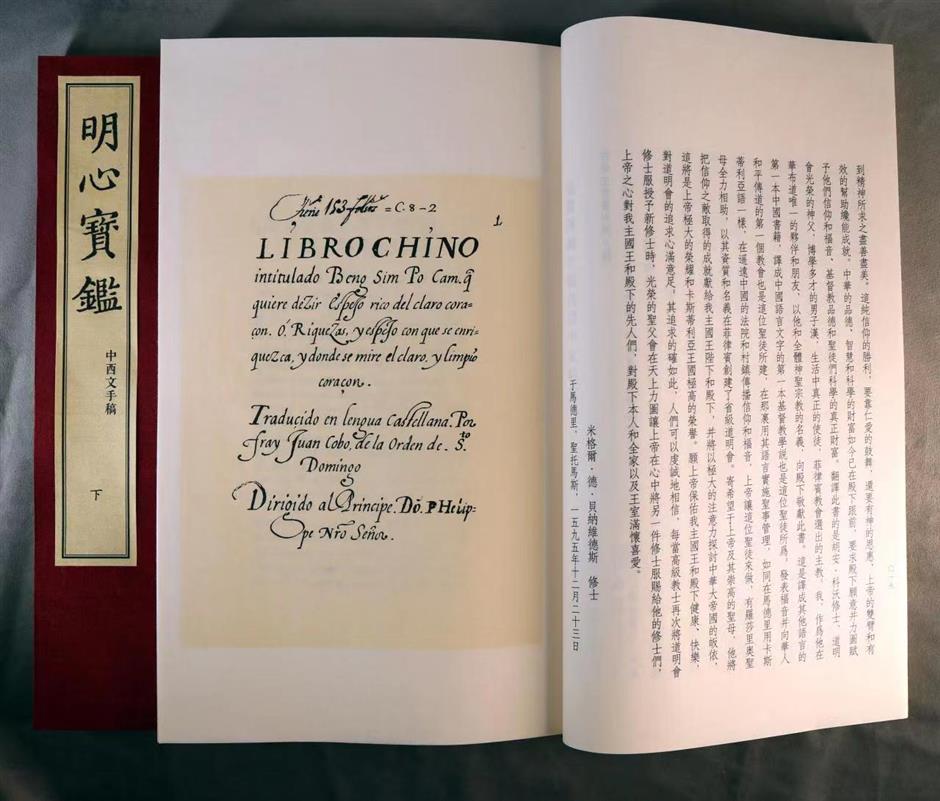 明心寶鑑
中西文手稿
下
= C. 8 - 2
1
LIBRO CHINO
intitulado Beng Sim Po Cam. q̃
quiere dezir espejo rico del claro cora-
con. ó, Riquezas, y espejo con que se enri-
quezca, y donde se mire el claro, y limpio
coraçon.
Traducido en lengua Castellana. Por
fray Juan Cobo, de la Orden de S.to
Domingo
Dirigido al Principe. Dõ. PHelip-
pe Nrõ Señor.
到精神所求之盡善盡美。這純信仰的勝利,要靠仁愛的鼓舞,還要有神的恩惠、上帝的雙臂和有
效的幫助纔能成就。中華的品德、智慧和科學的財富如今已在殿下跟前,要求殿下願意并力圖賦
予他們信仰和福音、基督教品德和聖徒們科學的真正財富。翻譯此書的是胡安·科沃修士,道明
會光榮的神父,博學多才的男子漢,生活中真正的使徒,菲律賓教會選出的主教。我,作爲他在
華布道唯一的夥伴和朋友,以他和全體神聖宗教的名義,向殿下敬獻此書。這是譯成其他語言的
第一本中國書籍,譯成中國語言文字的第一本基督教學説也是這位聖徒所爲,發表福音并向華人
和平傳道的第一個教會也是這位聖徒所建,在那裏用其語言實施聖事管理,如同在馬德里用卡斯
蒂利亞語一樣,在遥遠中國的法院和村鎮傳播信仰和福音,上帝讓這位聖徒來做,有羅莎里奥聖
母全力相助,以其資質和名義在菲律賓創建了省級道明會。寄希望于上帝及其崇高的聖母,他將
把信仰之敵取得的成就獻給我主國王陛下和殿下,并將以極大的注意力探討中華大帝國的皈依,
這將是上帝極大的榮耀和卡斯蒂利亞王國極高的榮譽。願上帝保佑我主國王和殿下健康、快樂,
對道明會的追求心滿意足。其追求的確如此,人們可以虔誠地相信,每當高級教士再次將道明會
修士服授予新修士時,光榮的聖父會在天上力圖讓上帝在心中將另一件修士服賜給他的修士們,
上帝之心對我主國王和殿下的先人們,對殿下本人和全家以及王室滿懷喜愛。
米格爾·德·貝納維德斯 修士
于馬德里,聖托馬斯,一五九五年十二月二十三日